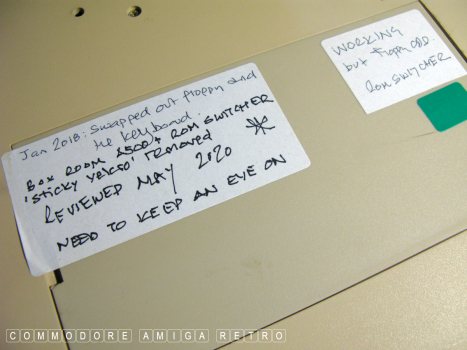 Jan 2018: Swapped out floppy and
the keyboard.
BOX ROOM A500+ ROM SWITCHER
'sticky velcro' removed
REVIEWED MAY 2020
NEED TO KEEP AN EYE ON
WORKING
but floppy ODD.
Rom SWITCHER
COMMODORE AMIGA RETRO